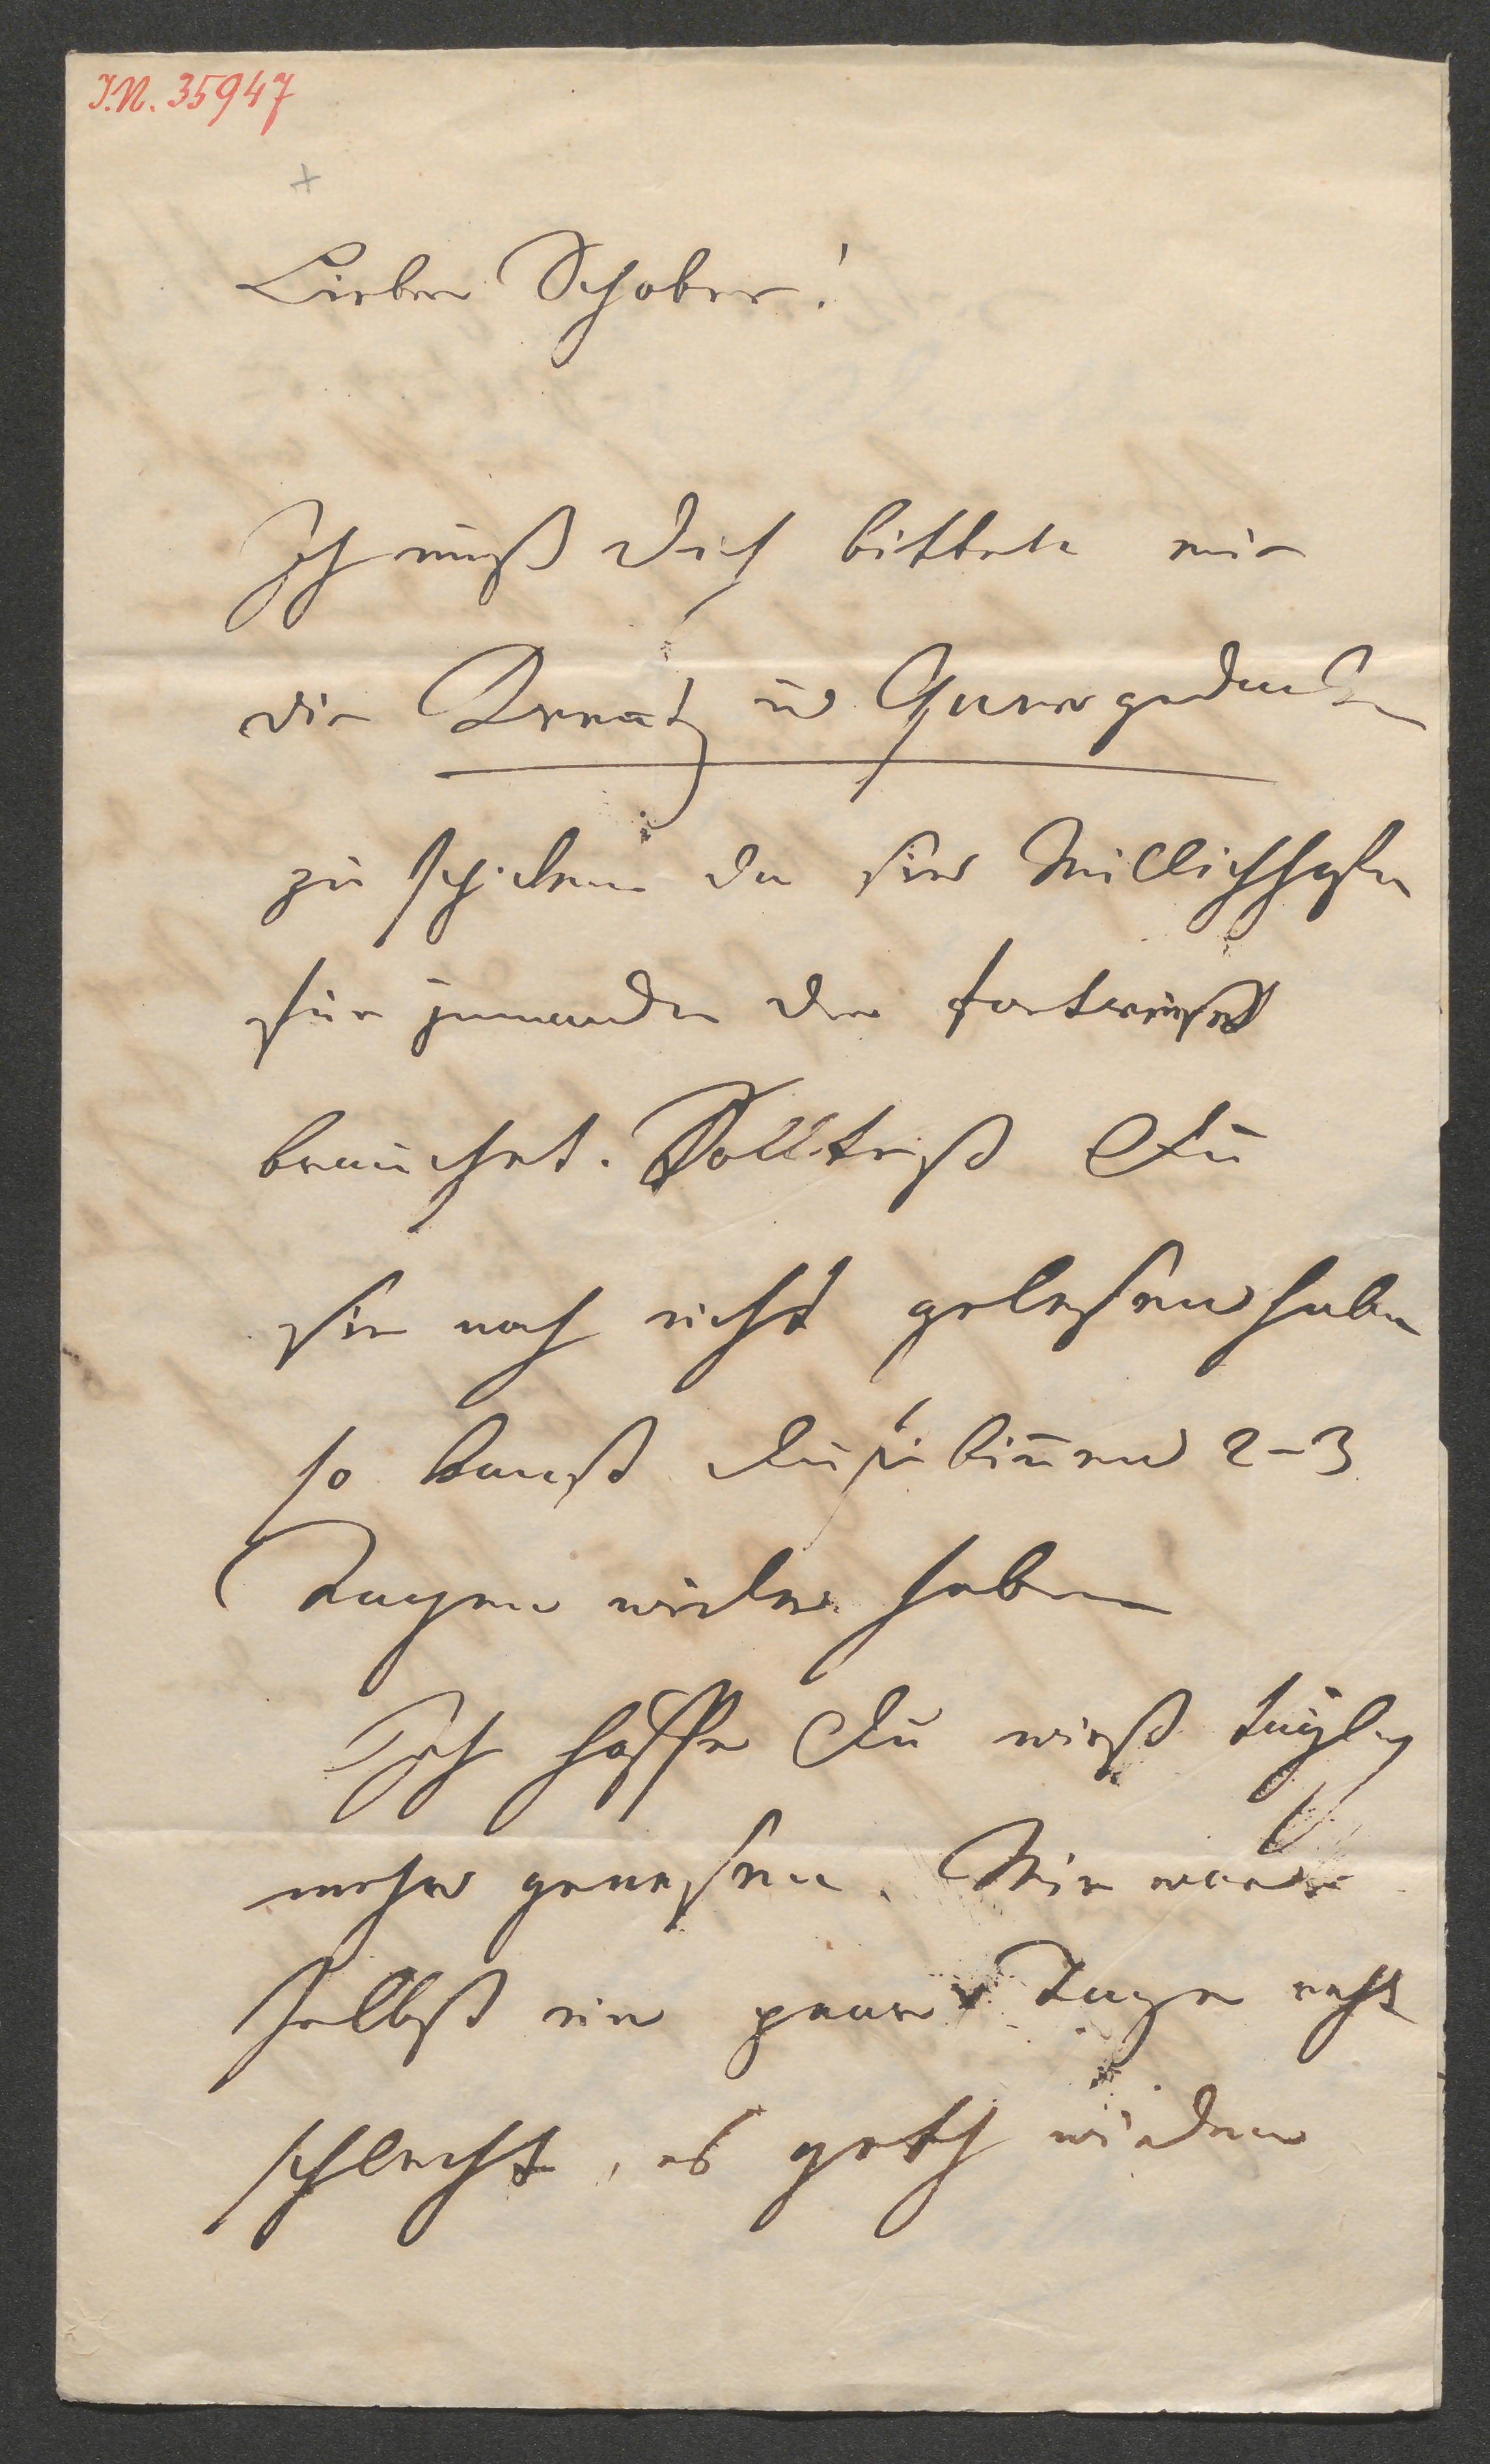 I.N. 35947
Lieber Schober!
Ich muß Dich bitten mir
die Kreutz u Quergedanken
zu schicken da sie
für jemanden der fortreist
brauchst. Solltest Du
sie noch nicht gelesen haben
so kanst Du sie bin̅en 2–3
Tagen wieder haben
Ich hoffe Du wirst täglich
mehr genesen. Mir war
selbst ein paar Tage recht
schlecht, es geth wieder